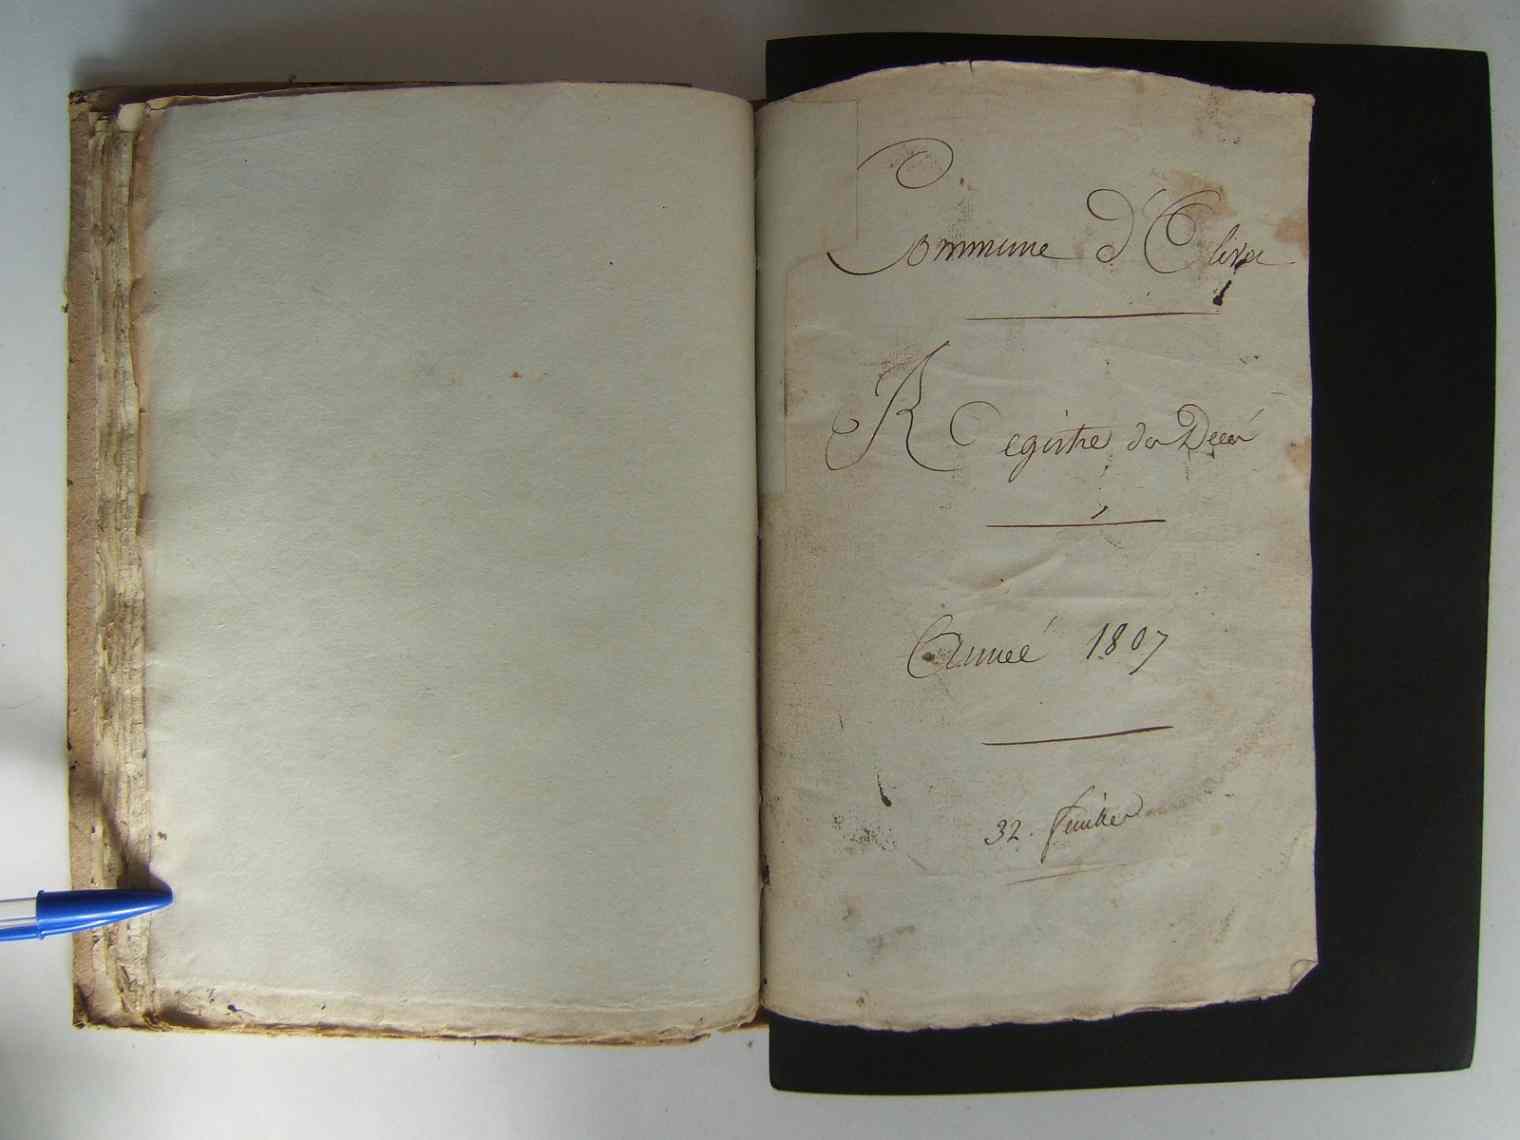 Commune d'Oliva
Registre des Décès
Année 1807
32. feuilles